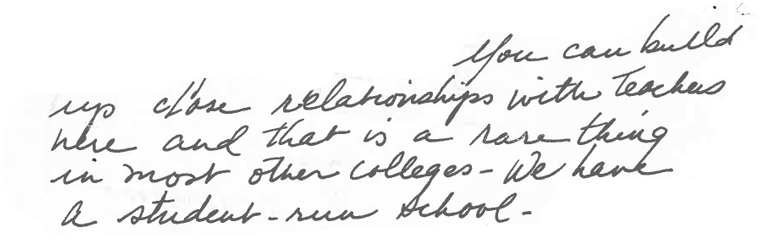 You can build
up close relationships with Teachers
here and that is a rare thing
in most other colleges - We have
a student-run school -